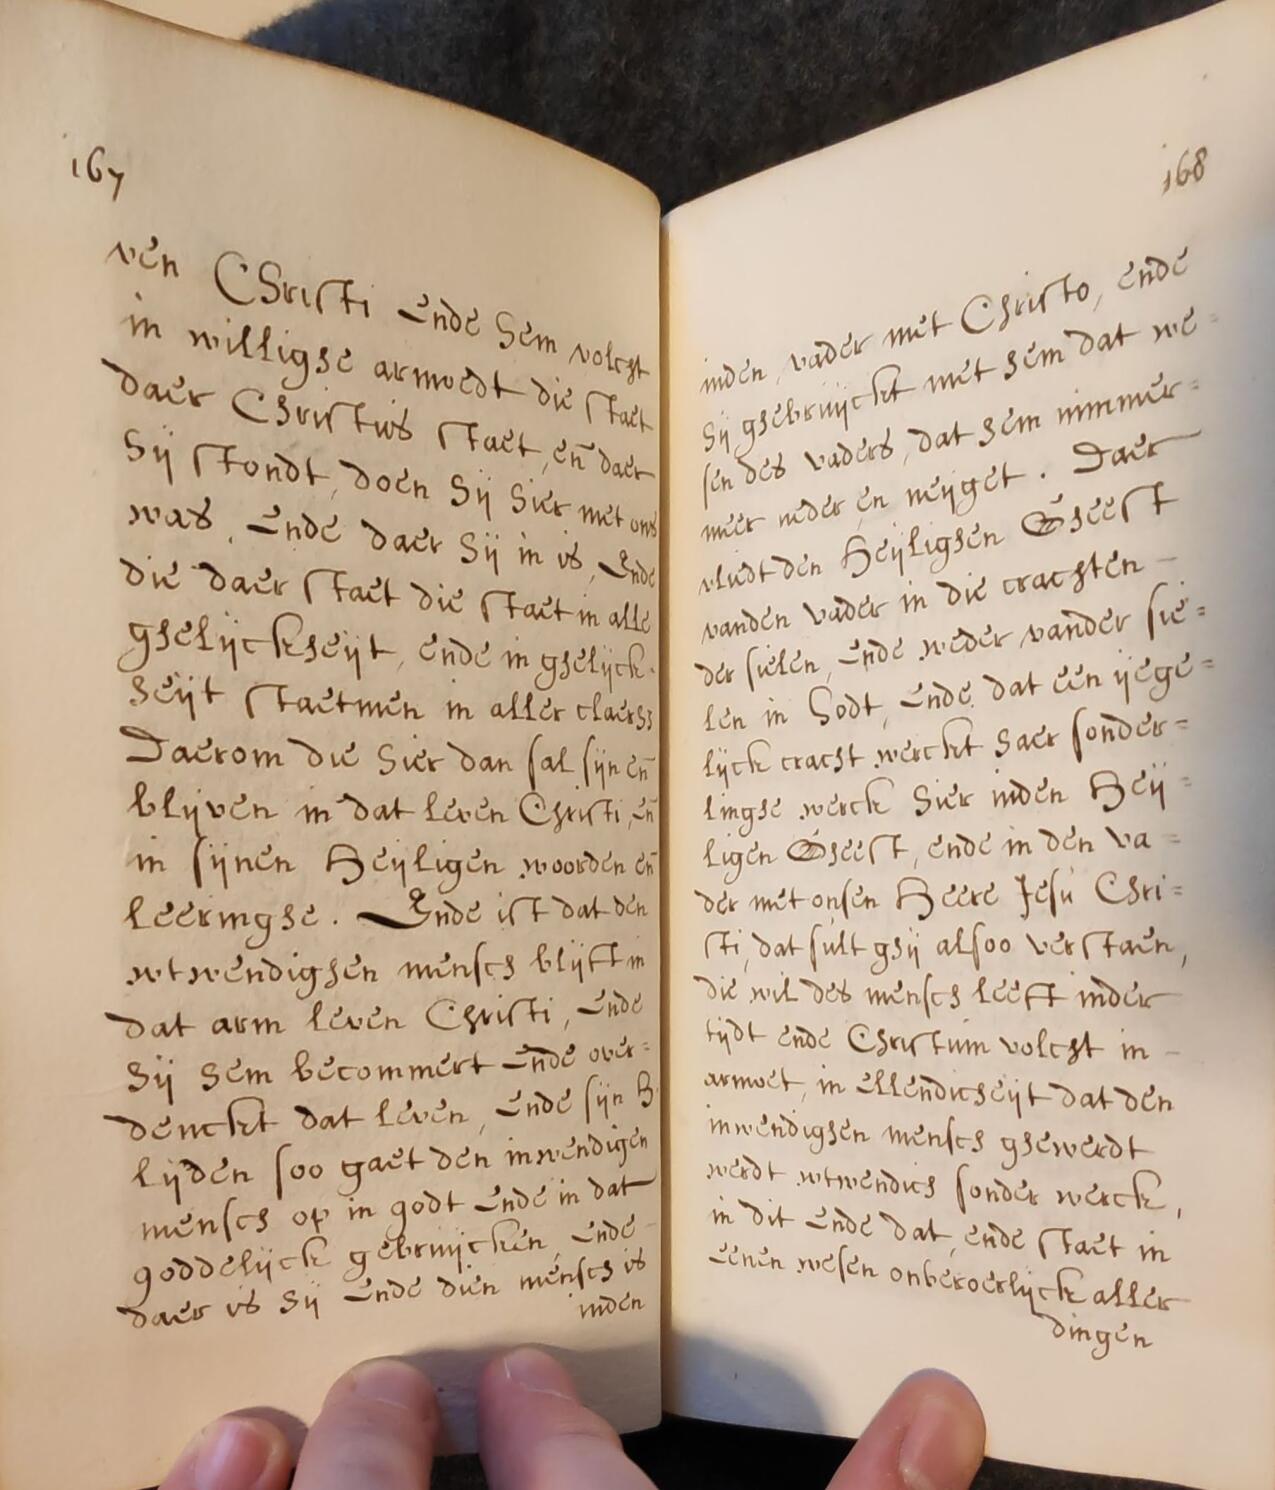 167
ven Christi ende hem volcht
in willighe armoedt die staet
daer Christus staet, en̄ daer
hij stondt, doen hij hier met ons
was, ende daer hij in is, Ende
die daer staet die staet in alle
ghelijckheijt, ende in ghelijck-
heijt staetmen in aller claerh:
Daerom die hier dan sal sijn en̄
blijven in dat leven Christi, en̄
in sijnen Heijligen woorden en̄
leeringhe. Ende ist dat den
wtwendighen mensch blijft in
dat arm leven Christi, ende
hij hem becommert ende over=
denckt dat leven, ende sijn H:
lijden soo gaet den inwendigen
mensch op in godt ende in dat
goddelijck gebruijcken, ende
daer is hij ende dien mensch is
inden
168
inden vader met Christo, ende
hij ghebruijckt met hem dat we=
sen des vaders, dat hem nimmer=
meer neder en neijget. Daer
vliedt den Heijlighen Gheest
vanden vader in die crachten –
der sielen, ende weder vander sie=
len in Godt, ende dat een ijege=
lijck cracht werckt haer sonder=
linghe werck hier inden Heij=
ligen Gheest, ende in den va=
der met onsen Heere Jesu Chri=
sti, dat sult ghij alsoo verstaen,
die wil des mensch leeft inder
tijdt ende Christum volcht in –
armoet, in ellendicheijt dat den
inwendighen mensch ghewerdt
werdt wtwendich sonder werck,
in dit ende dat, ende staet in
eenen wesen onberoerlijck aller
dingen